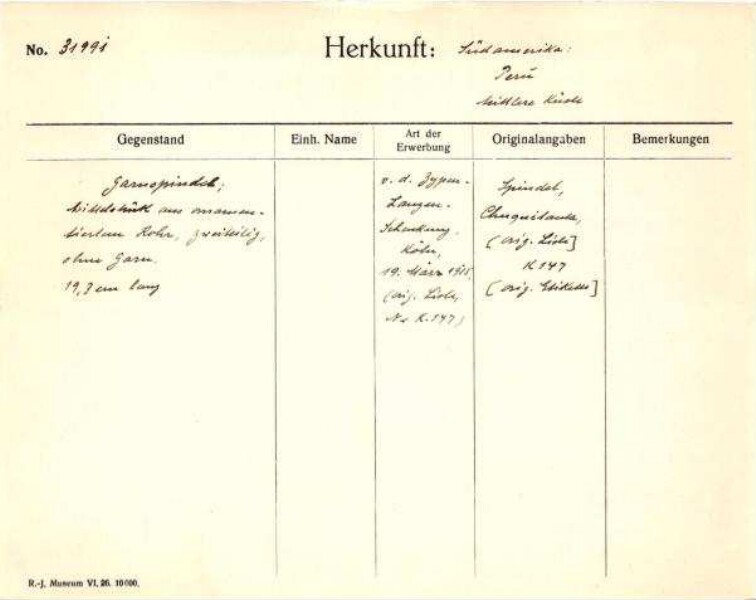 No. 31991
Herkunft: Südamerika:
Perú
Mittlere Küste
Gegenstand
Einh. Name
Art der
Erwerbung
Originalangaben
Bemerkungen
Garnspindel;
Mittelstück aus ornamen-
tiertem Rohr, zweiteilig,
ohne Garn.
19,7 cm lang
v. d. Zypen-
Langen-
Schenkung,
Köln,
19. März
(orig. Liste,
No K.147)
Spindel,
Chuquitanta,
(orig. Liste]
K 147
[orig. Etikette]
R.-J. Museum VI. 26. 10000.